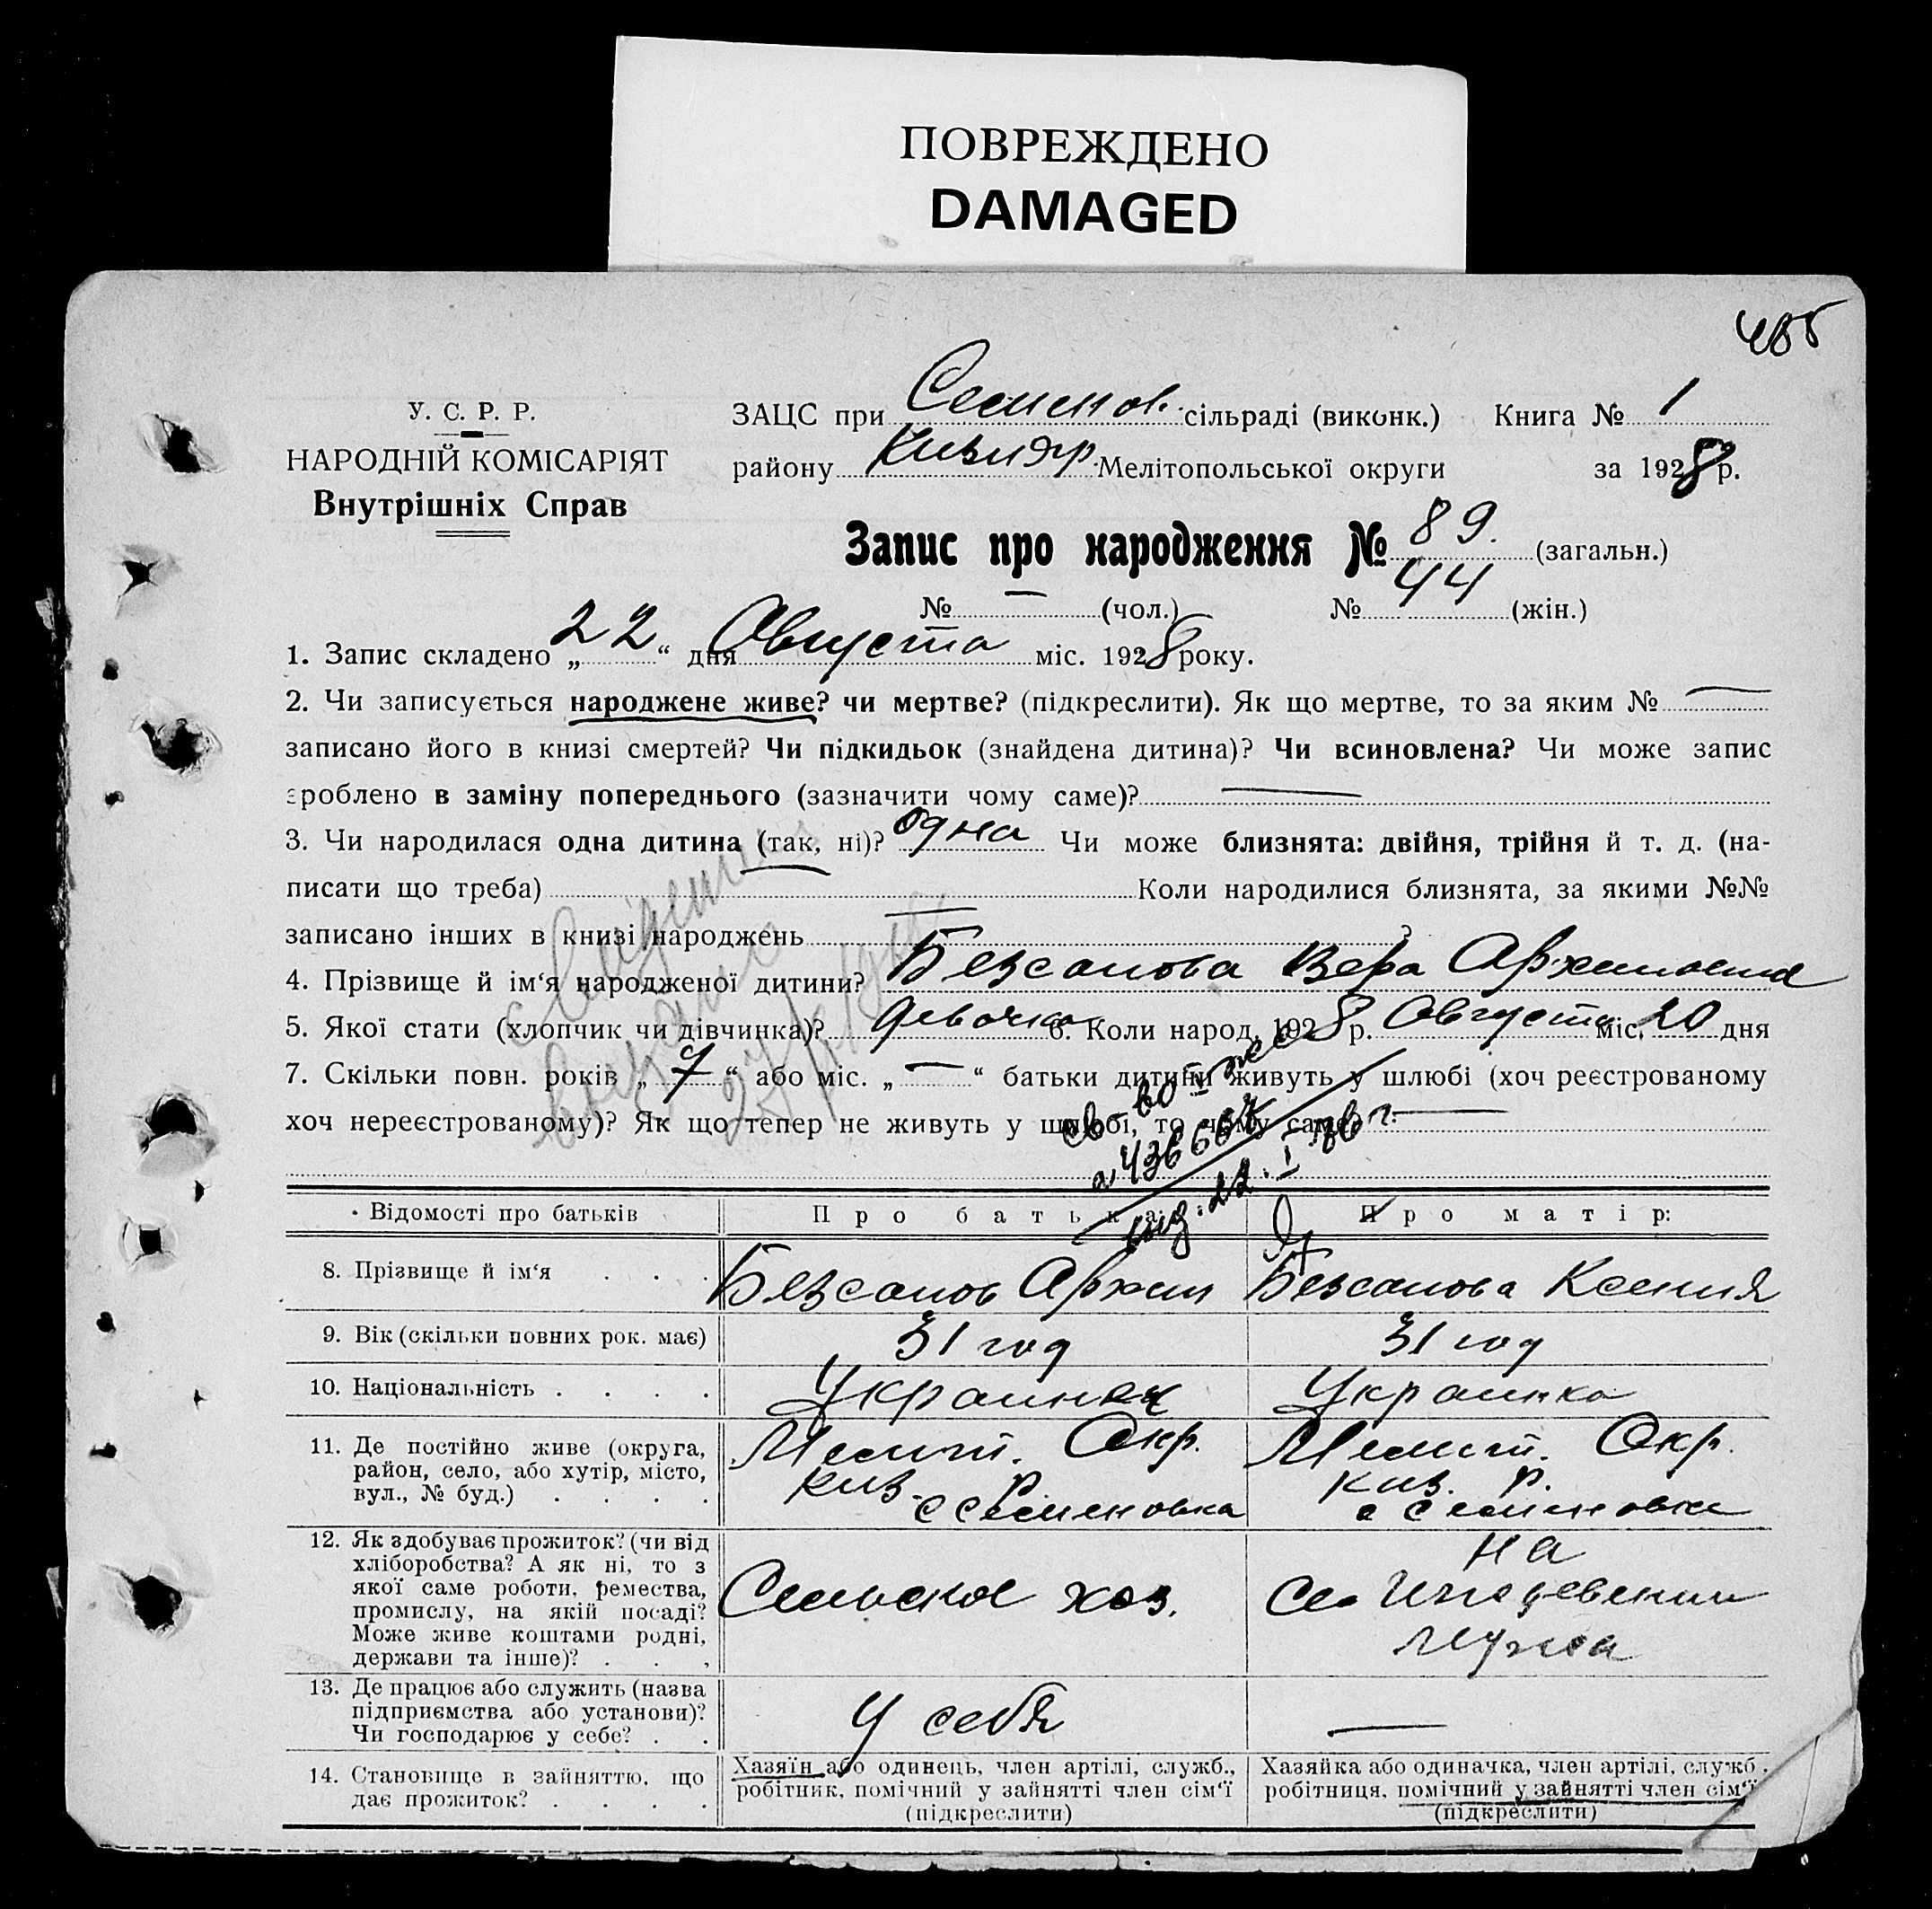 ПОВРЕЖДЕНО
DAMAGED
У. С. Р. Р.
НАРОДНІЙ КОМІСАРІЯТ
Внутрішніх Справ
ЗАЦС при Семенов. сільраді (виконк.) Книга № 1
району Кизияр. Мелітопольської округи за 1928 р.
Запис про народження № 89. (загальн.)
№ — (чол.) № 44 (жін.)
1. Запис складено „22“ дня Августа міс. 1928 року.
2. Чи записується народжене живе? чи мертве? (підкреслити). Як що мертве, то за яким № —
записано його в книзі смертей? Чи підкидьок (знайдена дитина)? Чи всиновлена? Чи може запис
зроблено в заміну попереднього (зазначити чому саме)? —
3. Чи народилася одна дитина (так, ні)? одна Чи може близнята: двійня, трійня й т. д. (на-
писати що треба) Коли народилися близнята, за якими №№
записано інших в книзі народжень — ?
4. Прізвище й ім‘я народженої дитини? Безсанова Вера Архиповна
5. Якої стати (хлопчик чи дівчинка)? девочка 6. Коли народ. 1928 р. Августа міс. 20 дня
7. Скільки повн. років „7“ або міс. „—“ батьки дитини живуть у шлюбі (хоч реєстрованому
хоч нереєстрованому)? Як що тепер не живуть у шлюбі, то чому саме —
Відомості про батьків Про батька: Про матір:
8. Прізвище й ім‘я . . . Безсанов Архип Безсанова Ксения
9. Вік (скільки повних рок. має) 31 год 31 год
10. Національність . . . . Украинец Украинка
11. Де постійно живе (округа, район, село, або хутір, місто, вул., № буд.) . . . .
Мелит. Окр. Мелит. Окр.
Киз. р. Киз. р.
с Семеновка с Семеновка
12. Як здобуває прожиток? (чи від хліборобства? А як ні, то з якої саме роботи, ремества, промислу, на якій посаді? Може живе коштами родні, держави та інше)? . . .
Сельское хоз. на
иждевении
мужа
13. Де працює або служить (назва підприємства або установи)? Чи господарює у себе? . .
У себя —
14. Становище в зайняттю, що дає прожиток? . . . .
Хазяїн або одинець, член артілі, служб., робітник, помічний у зайнятті член сім‘ї (підкреслити)
Хазяйка або одиначка, член артілі, служб., робітниця, помічний у зайнятті член сім‘ї (підкреслити)